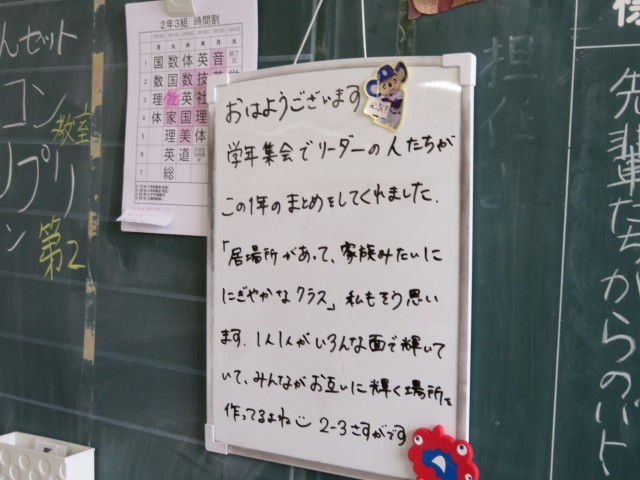 んセット
コン
教室
プリ
ン
第2
2年3組 時間割
国数体英音
数国数技英
理社英社
体家国理
理美体
英道
総
おはようございます
学年集会でリーダーの人たちが
この1年のまとめをしてくれました.
「居場所があって、家族みたいに
にぎやかなクラス」私もそう思い
ます. 1人1人がいろんな面で輝いて
いて、みんながお互いに輝く場所を
作ってるよね 2-3さすがです
先輩たちからのバト